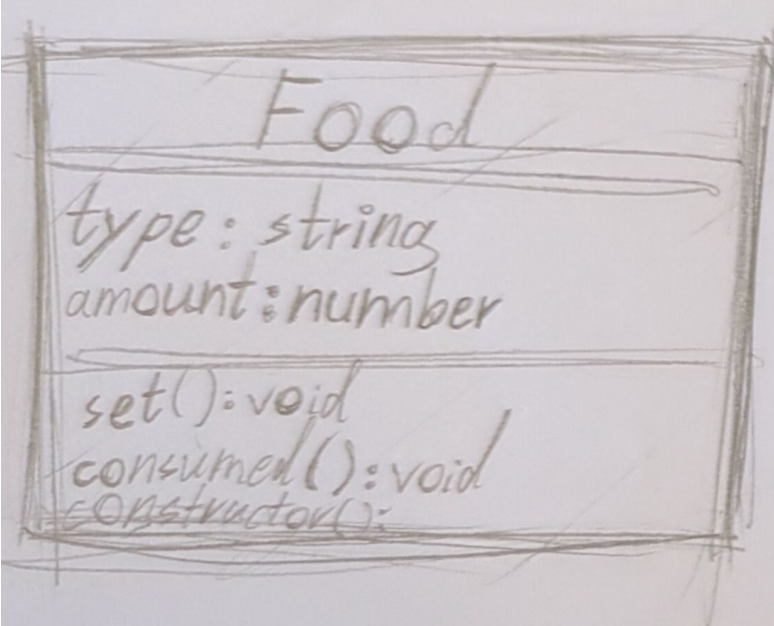 Food
type: string
amount: number
set(): void
consumed(): void
constructor():